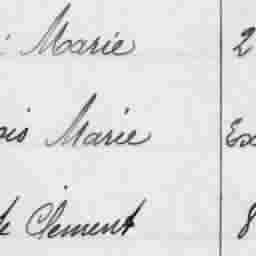 Marie 2
ois Marie Ex
de Clement 8